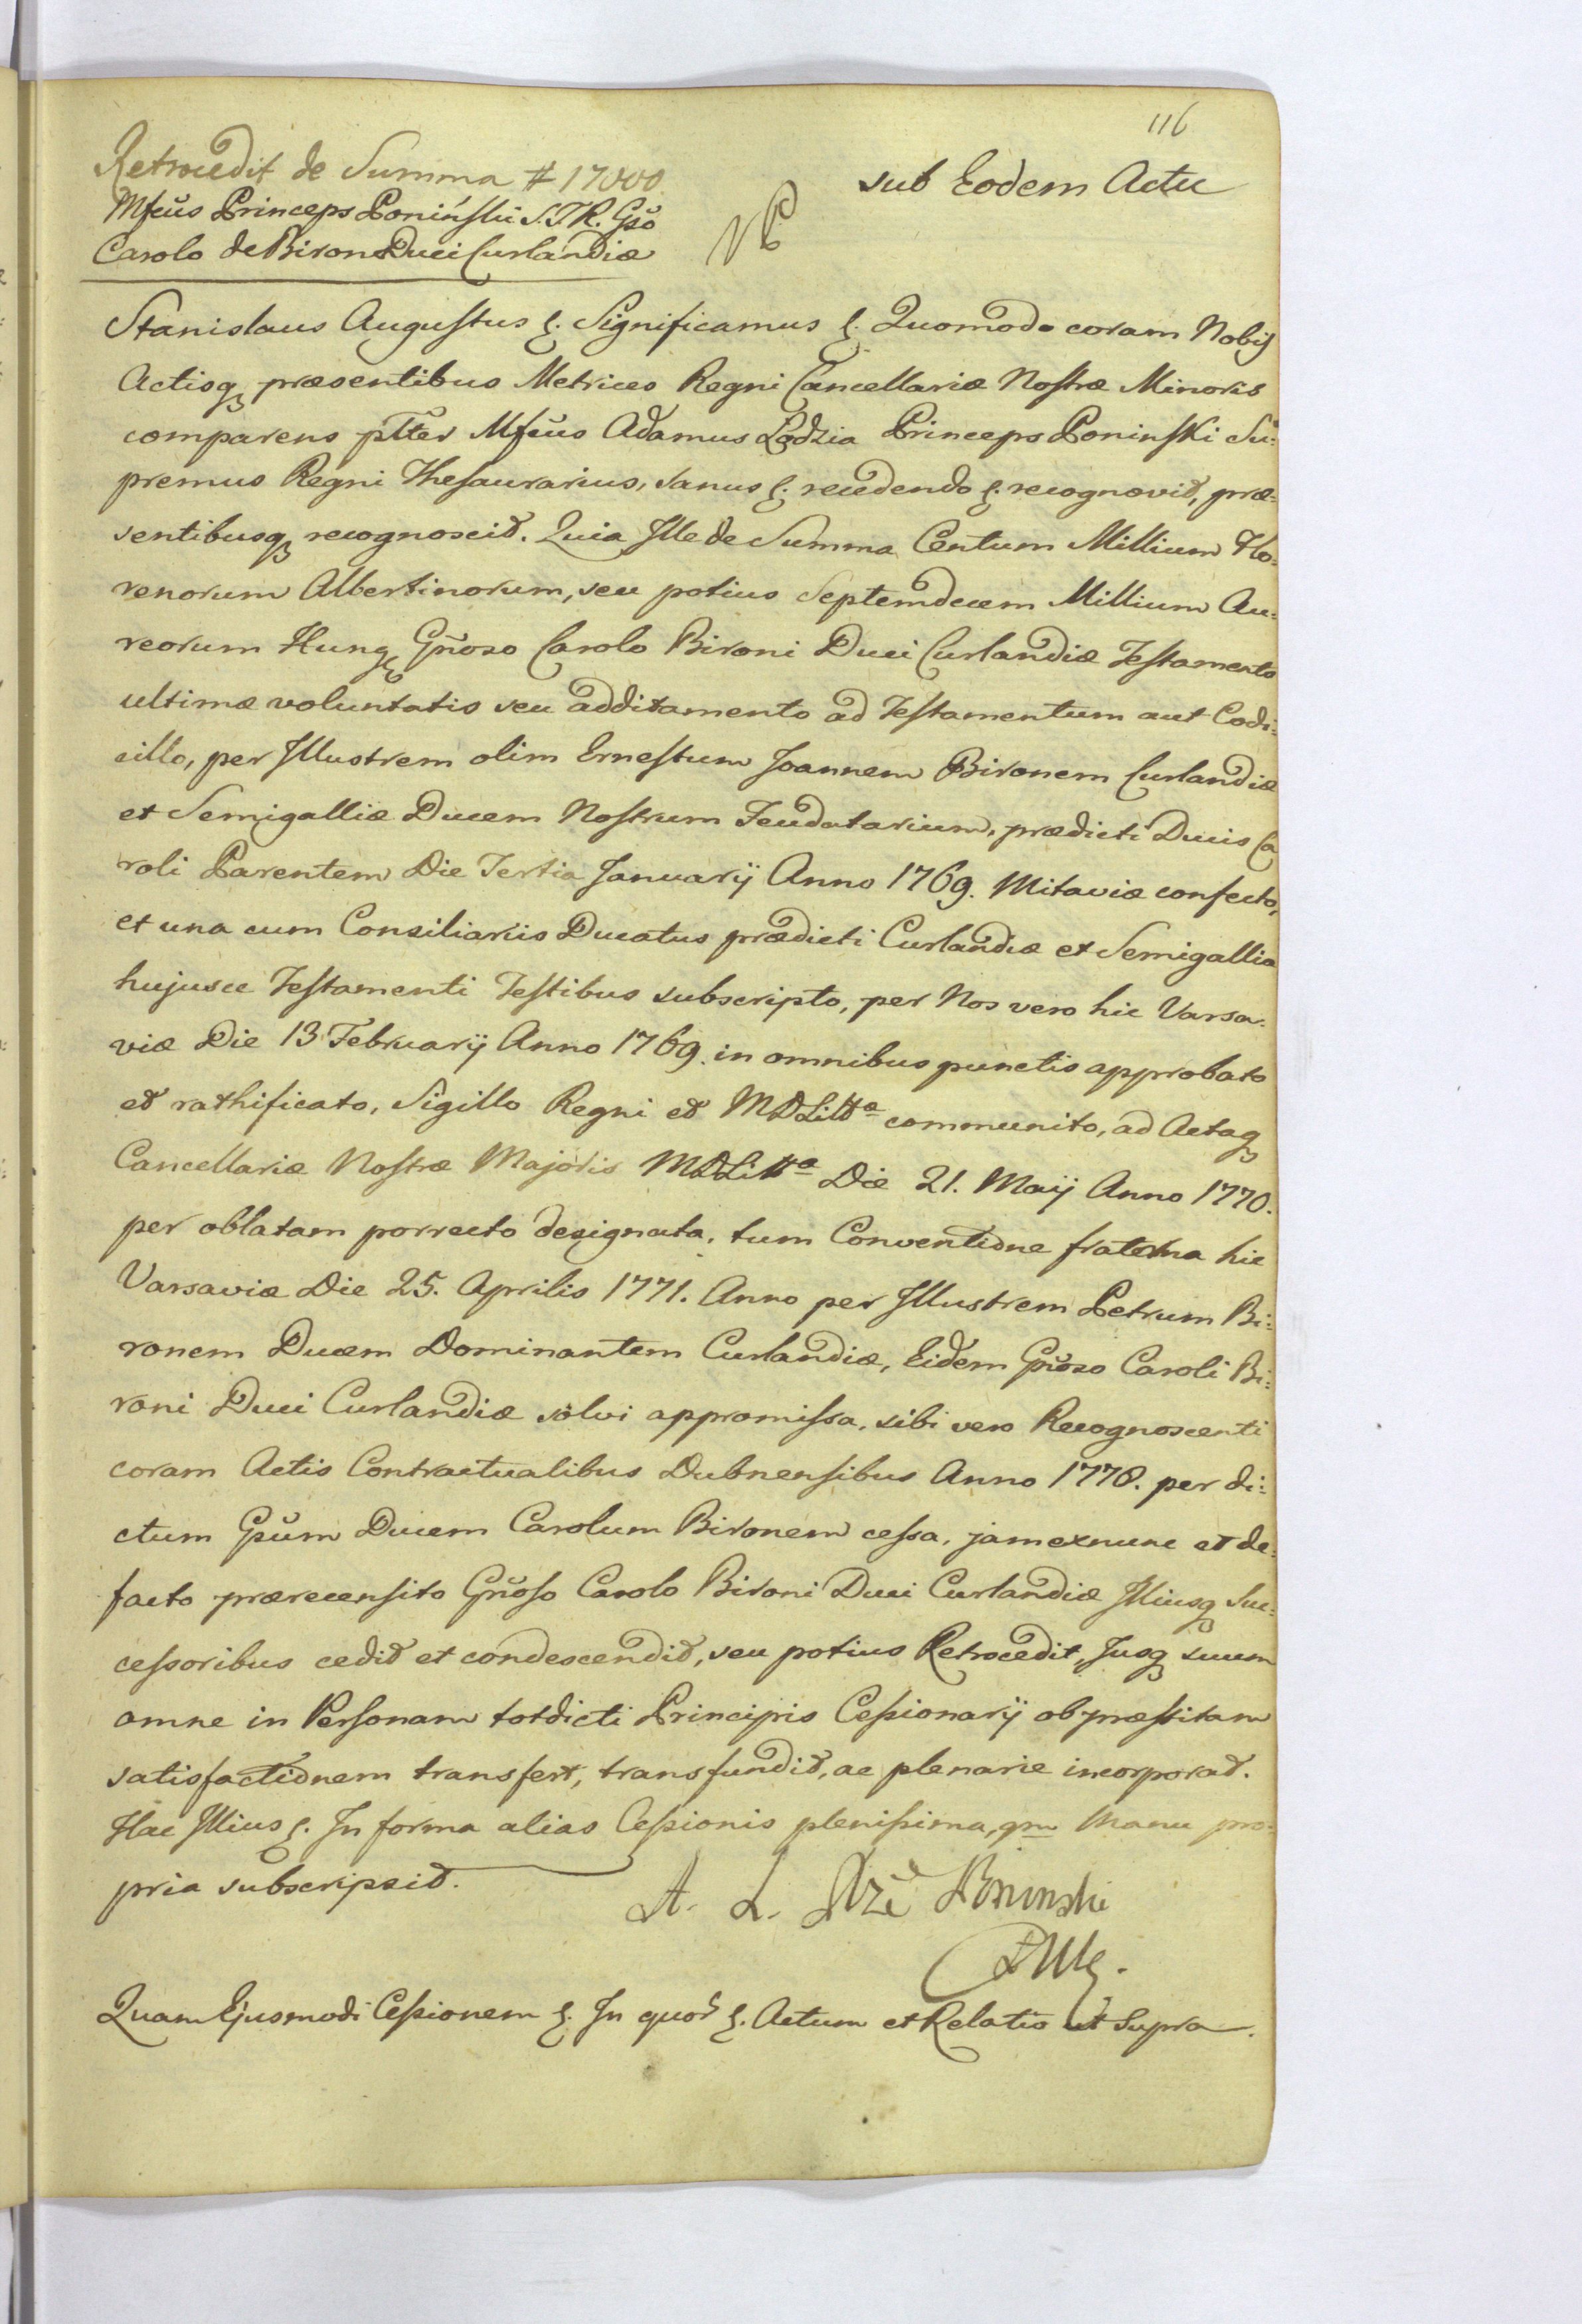 116
Retrocedit de Summa # 17000
Mfcus Princeps Poninski S.T.R. Gso
Carolo de Biron Duci Curlandiæ
sub Eodem Actu
Stanislaus Augustus &. Significamus &. Quomodo coram Nobis
Actisq præsentibus Metrices Regni Cancellariæ Nostræ Minoris
comparens pltter Mfcus Adamus Lodzia Princeps Poninski Su:
premus Regni Thesaurarius, sanus &. recedendo &. recognovit, præ:
sentibusq recognoscit. Quia Ille de Summa Centum Millium Flo:
renorum Albertinorum, seu potius Septemdecem Millium Au:
reorum Hung Gnoso Carolo Bironi Duci Curlandiæ Testamento
ultimæ voluntatis seu additamento ad Testamentum aut Codi:
cillo, per Illustrem olim Ernestum Joannem Bironem Curlandiæ
et Semigalliæ Ducem Nostrum Feudatarium, prædicti Ducis Ca
roli Parentem Die Tertia Januarij Anno 1769. Mitaviæ confecto,
et una cum Consiliariis Ducatus prædicti Curlandiæ et Semigallia
hujusce Testamenti Testibus subscripto, per Nos vero hic Varsa:
viæ Die 13 Februarij Anno 1769. in omnibus punctis approbato
et rathificato, Sigillo Regni et MDLitta communito, ad Actaq
Cancellariæ Nostræ Majoris MDLitta Die 21. Maij Anno 1770.
per oblatam porrecto designata, tum Conventione fraterna hic
Varsaviæ Die 25. Aprilis 1771. Anno per Illustrem Petrum Bi:
ronem Ducem Dominantem Curlandiæ, Eidem Gnoso Caroli Bi:
roni Duci Curlandiæ solvi appromissa, sibi vero Recognoscenti
coram Actis Contractualibus Dubnensibus Anno 1778. per di:
ctum Gsum Ducem Carolum Bironem cessa, jam exnunc et de:
facto prærecensito Gnoso Carolo Bironi Duci Curlandiæ Illiusq Suc:
cessoribus cedit et condescendit, seu potius Retrocedit, Jusq suum
omne in Personam totdicti Principis Cessionarij ob præstitam
satisfactionem transfert, transfundit, ac plenarie incorporat.
Hac Illius &. In forma alias Cessionis plenissima, qm Manu pro:
pria subscripsit.
A. L. Xże Poninski
Quam Ejusmodi Cessionem &. In quor &. Actum et Relatio ut Supra.